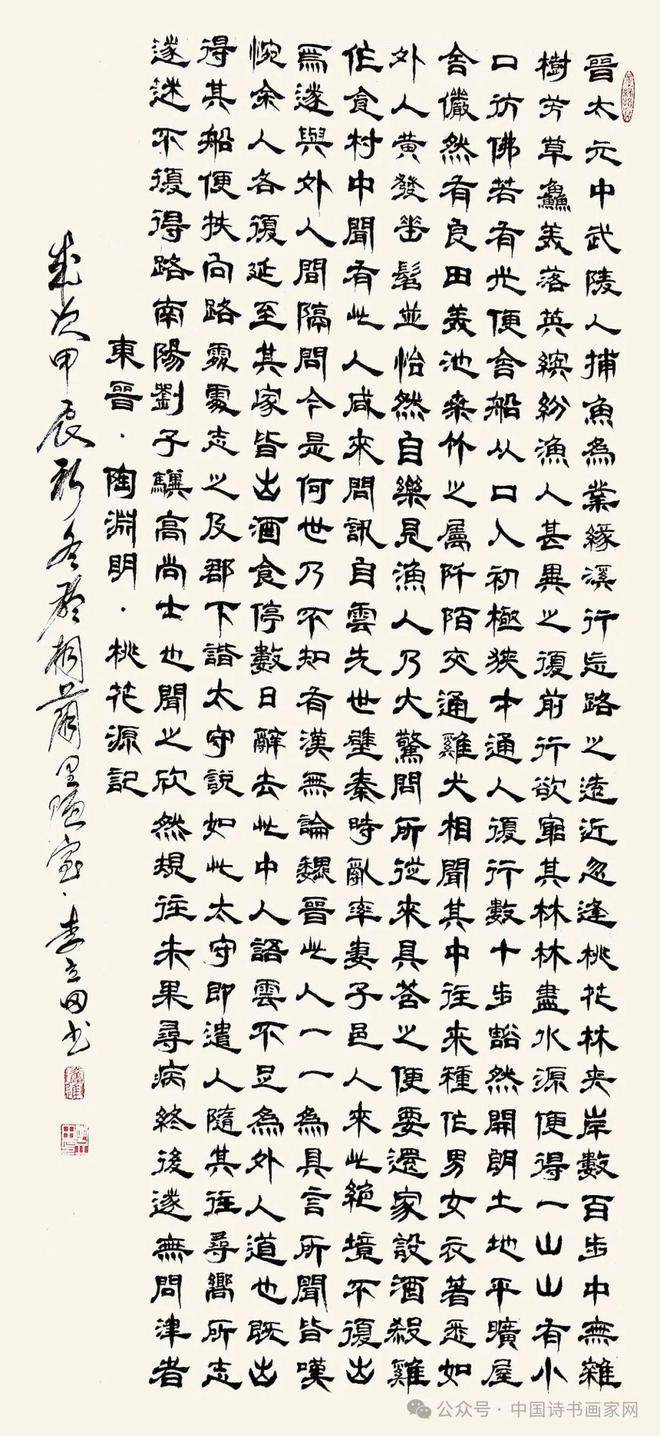 晉太元中武陵人捕魚為業緣溪行忘路之造近忽逢桃花林夾岸數百步中無雜
樹芳草鱻美落英繽紛漁人甚異之復前行欲窮其林林盡水源便得一山山有小
口彷佛若有光便舍船从口入初極狹才通人復行數十步豁然開朗土地平曠屋
舍儼然有良田美池桑竹之屬阡陌交通雞犬相聞其中往來種作男女衣著悉如
外人黃發垂髫並怡然自樂見漁人乃大驚問所從來具答之便要還家設酒殺雞
作食村中聞有此人咸來問訊自雲先世壁秦時亂率妻子邑人來此絕境不復出
焉遂與外人間隔問今是何世乃不知有漢無論魏晉此人一一為具言所聞皆嘆
惋余人各復延至其家皆出酒食停數日辭去此中人語雲不足為外人道也既出
得其船便扶向路處處志之及郡下詣太守說如此太守即遣人隨其往尋嚮所志
遂迷不復得路南陽劉子驥高尚士也聞之欣然規往未果尋病終後遂無問津者
東晉·陶淵明·桃花源記
歲次甲辰初冬於桐里陋室·李立田书
公众号·中国诗书画家网